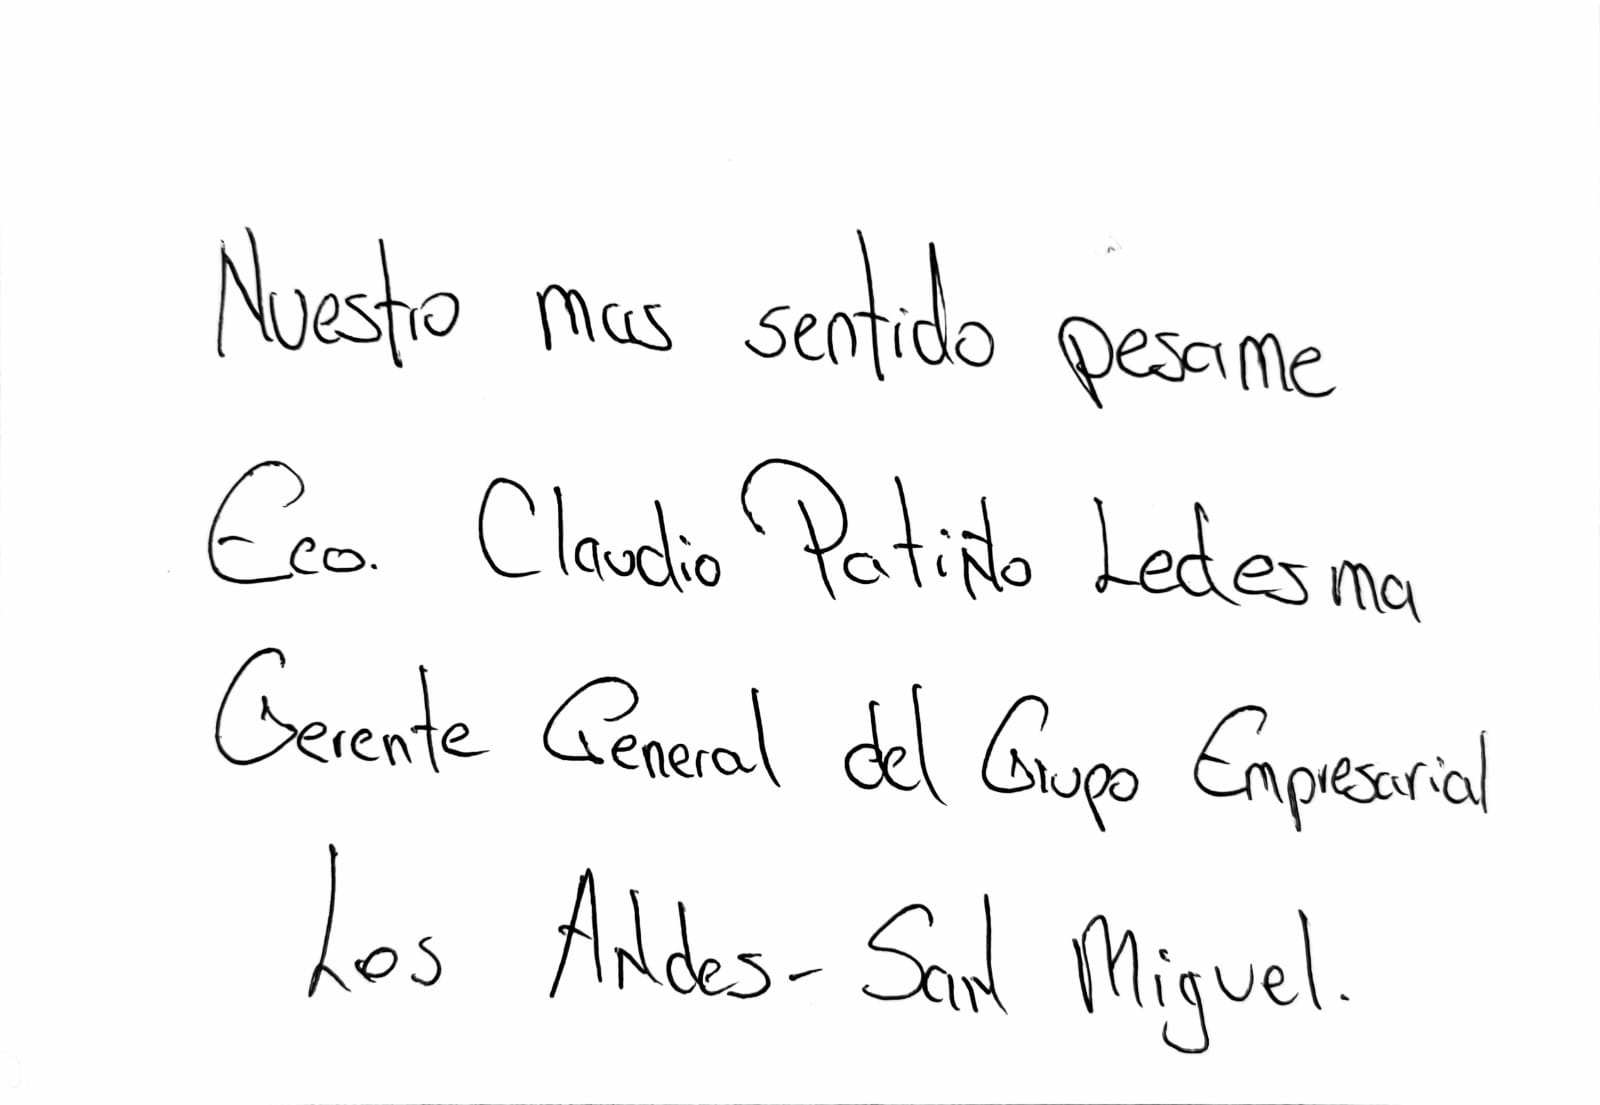 Nuestro mas sentido pesame
Eco. Claudio Patiño Ledesma
Gerente General del Grupo Empresarial
Los Andes - San Miguel.